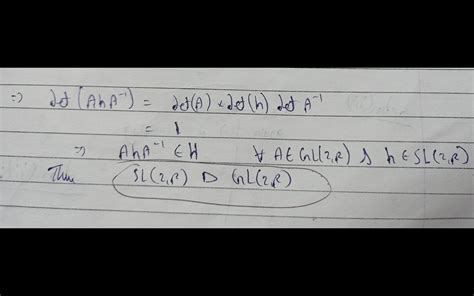 ⇒ det(AhA⁻¹) = det(A) × det(h) det A⁻¹
= 1
⇒ AhA⁻¹ ∈ H ∀ A ∈ GL(2,R) & h ∈ SL(2,R)
Thus SL(2,R) ▷ GL(2,R)